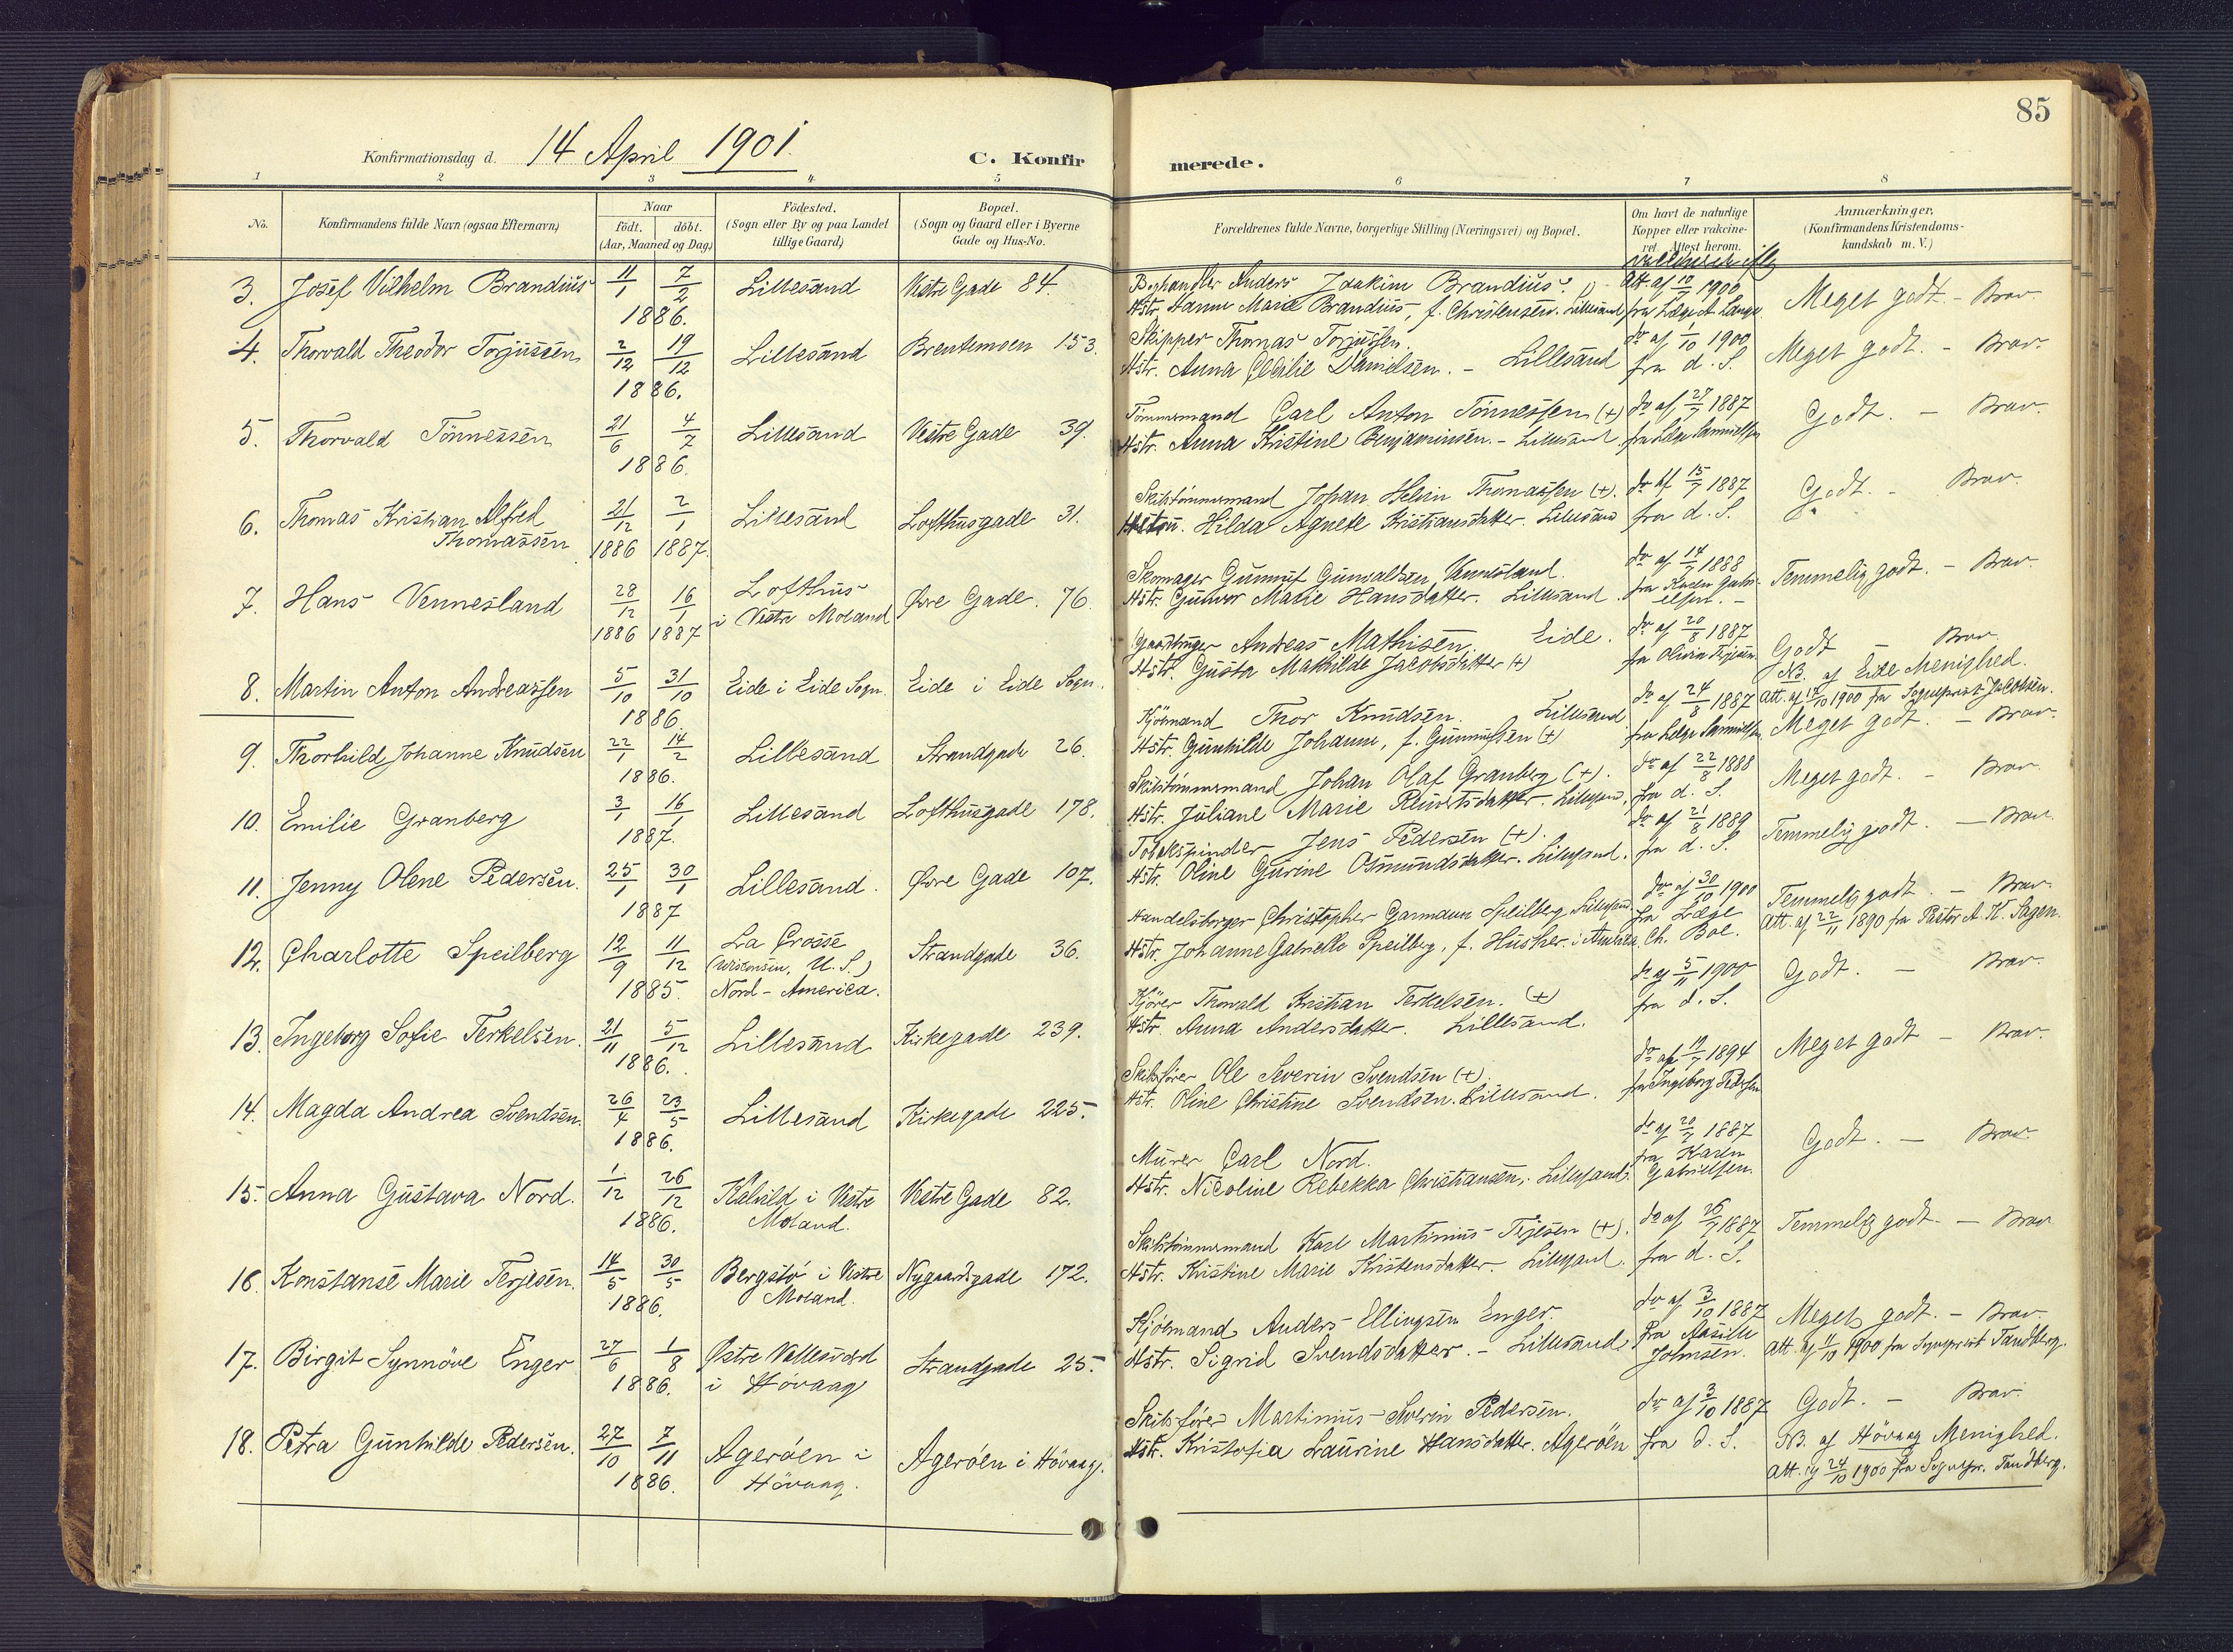 85
Konfirmationsdag d. 14 April 1901. C. Konfirmerede.
1 2 3 4 5 6 7 8
No. Konfirmandens fulde Navn (ogsaa Efternavn) Naar födt. döbt. (Aar, Maaned og Dag) Födested. (Sogn eller By og paa Landet tillige Gaard) Bopæl. (Sogn og Gaard eller i Byerne Gade og Hus-No. Forældrenes fulde Navne, borgerlige Stilling (Næringsvei) og Bopæl. Om havt de naturlige Kopper eller vakcineret. Attest herom. Anmærkninger. (Konfirmandens Kristendomskundskab m. V.)
3. Josef Vilhelm Brandius 11/1 7/2 1886. Lillesand Vestre Gade 84. Anders Joakim Brandius.
Hstr. Hanne Marie Brandius, f. Christensen. Lillesand Att. af 1900 fra Læge A. Lange. Meget godt. - Brav.
4. Thorvald Theodor Torjussen 2/12 19/12 1886. Lillesand Brentemoen 153. Skipper Thomas Torjussen.
Hstr. Anna Danielsen. - Lillesand do af 1/10 1900 fra d. S. Meget godt. - Brav.
5. Thorvald Tönnessen 21/6 4/7 1886. Lillesand Vestre Gade 39. Tömmermand Carl Anton Tönnessen (+)
Hstr. Anna Kristine Benjaminsen. - Lillesand do af 29/7 1887 fra Læge Samuelsen Godt. - Brav.
6. Thomas Kristian Alfred Thomassen 21/12 1886 2/1 1887. Lillesand Lofthusgade 31. Skibstömmermand Johan Thomassen (+).
Hilda Agnete Kristiansdatter. Lillesand do af 15/7 1887 fra d. S. Godt. - Brav.
7. Hans Vennesland 28/12 1886 16/1 1887 Lofthus i Vestre Moland Övre Gade. 76. Skomager Gunnuf Gunvaldsen Vennesland.
Hstr. Gunvor Marie Hansdatter. Lillesand. do af 14/7 1888 fra Karen Gabrielsen. - Temmelig godt. - Brav.
8. Martin Anton Andreassen 5/10 31/10 1886. Eide i Eide Sogn. Eide i Eide Sogn. Gaardbruger Andreas Mathisen. Eide.
Hstr. Gusta Mathilde Jacobsdatter (+) do af 20/8 1887 fra Olivia Terjesen. Godt - Brav.
NB. af Eide Menighed.
Att. af 14/10 1900 fra Sogneprest Jacobsen.
9. Thorhild Johanne Knudsen 22/1 14/2 1886. Lillesand Strandgade 26. Kjöbmand Thor Knudsen. Lillesand.
Hstr. Gunhilde Johanne, f. Gunnufsen (+) do af 24/8 1887 fra Læge Samuelsen Meget godt. - Brav.
10. Emilie Granberg 3/1 16/1 1887. Lillesand Lofthusgade 178. Skibstömmermand Johan Olaf Granberg (+).
Hstr. Juliane Marie Reiersdatter. Lillesand. do af 22/8 1888 fra d. S. Meget godt. - Brav.
11. Jenny Olene Pedersen. 25/1 30/1 1887 Lillesand. Övre Gade 107. Tobakspinder Jens Pedersen (+).
Hstr. Oline Gurine Osmundsdatter. Lillesand. do af 21/8 1889 fra d. S. Temmelig godt. - Brav.
12. Charlotte Speilberg 12/9 11/12 1885. La Crosse (Wisconsin, U. S.) Nord-America. Strandgade 36. Handelsborger Christopher Garmann Speilberg Lillesand.
Hstr. Johanne Gabrielle Speilberg, f. Husher. i Amerika do af 30/10 1900 fra Læge Ch. Boe. Temmelig godt. - Brav.
Att. af 22/11 1890 fra Pastor A. K. Sagen.
13. Ingeborg Sofie Terkelsen. 21/11 5/12 1886. Lillesand Kirkegade 239. Kjörer Thorvald Kristian Terkelsen. (+)
Hstr. Anna Andersdatter. Lillesand. do af 5/11 1900 fra d. S. Godt. - Brav.
14. Magda Andrea Svendsen. 26/4 23/5 1886. Lillesand Kirkegade 225. Skibsförer Ole Severin Svendsen (+).
Hstr. Oline Christine Svendsen. Lillesand. do af 19/7 1894 fra Ingeborg Pedersen Meget godt - Brav.
15. Anna Gustava Nord. 1/12 26/12 1886. Kalvild i Vestre Moland. Vestre Gade 82. Murer Carl Nord.
Hstr. Nicoline Rebekka Christiansen, Lillesand. do af 20/7 1887 fra Karen Gabrielsen. Godt. - Brav.
16. Konstanse Marie Terjesen. 14/5 30/5 1886. Bergstö i Vestre Moland. Nygaardsgade 172. Skibstömmermand Karl Martinius Terjesen (+).
Hstr. Kristine Marie Kristensdatter. Lillesand. do af 26/7 1887 fra d. S. Temmelig godt. - Brav
17. Birgit Synnöve Enger 27/6 1/8 1886. Östre Vallesværd i Hövaag Strandgade 25. Kjöbmand Anders Ellingsen Enger.
Hstr. Sigrid Svendsdatter. - Lillesand. do af 3/10 1887 fra Johnsen. Meget godt. - Brav.
Att. af 11/10 1900 fra Sogneprest Tandberg.
18. Petra Gunhilde Pedersen. 27/10 7/11 1886. Ageröen i Hövaag. Ageröen i Hövaag. Skibsförer Martinius Severin Pedersen.
Hstr. Kristofia Laurine Hansdatter. Ageröen do af 3/10 1887 fra d. S. Godt. - Brav.
NB. af Hövaag Menighed.
Att. af 24/10 1900 fra Sognepr. Tandberg.